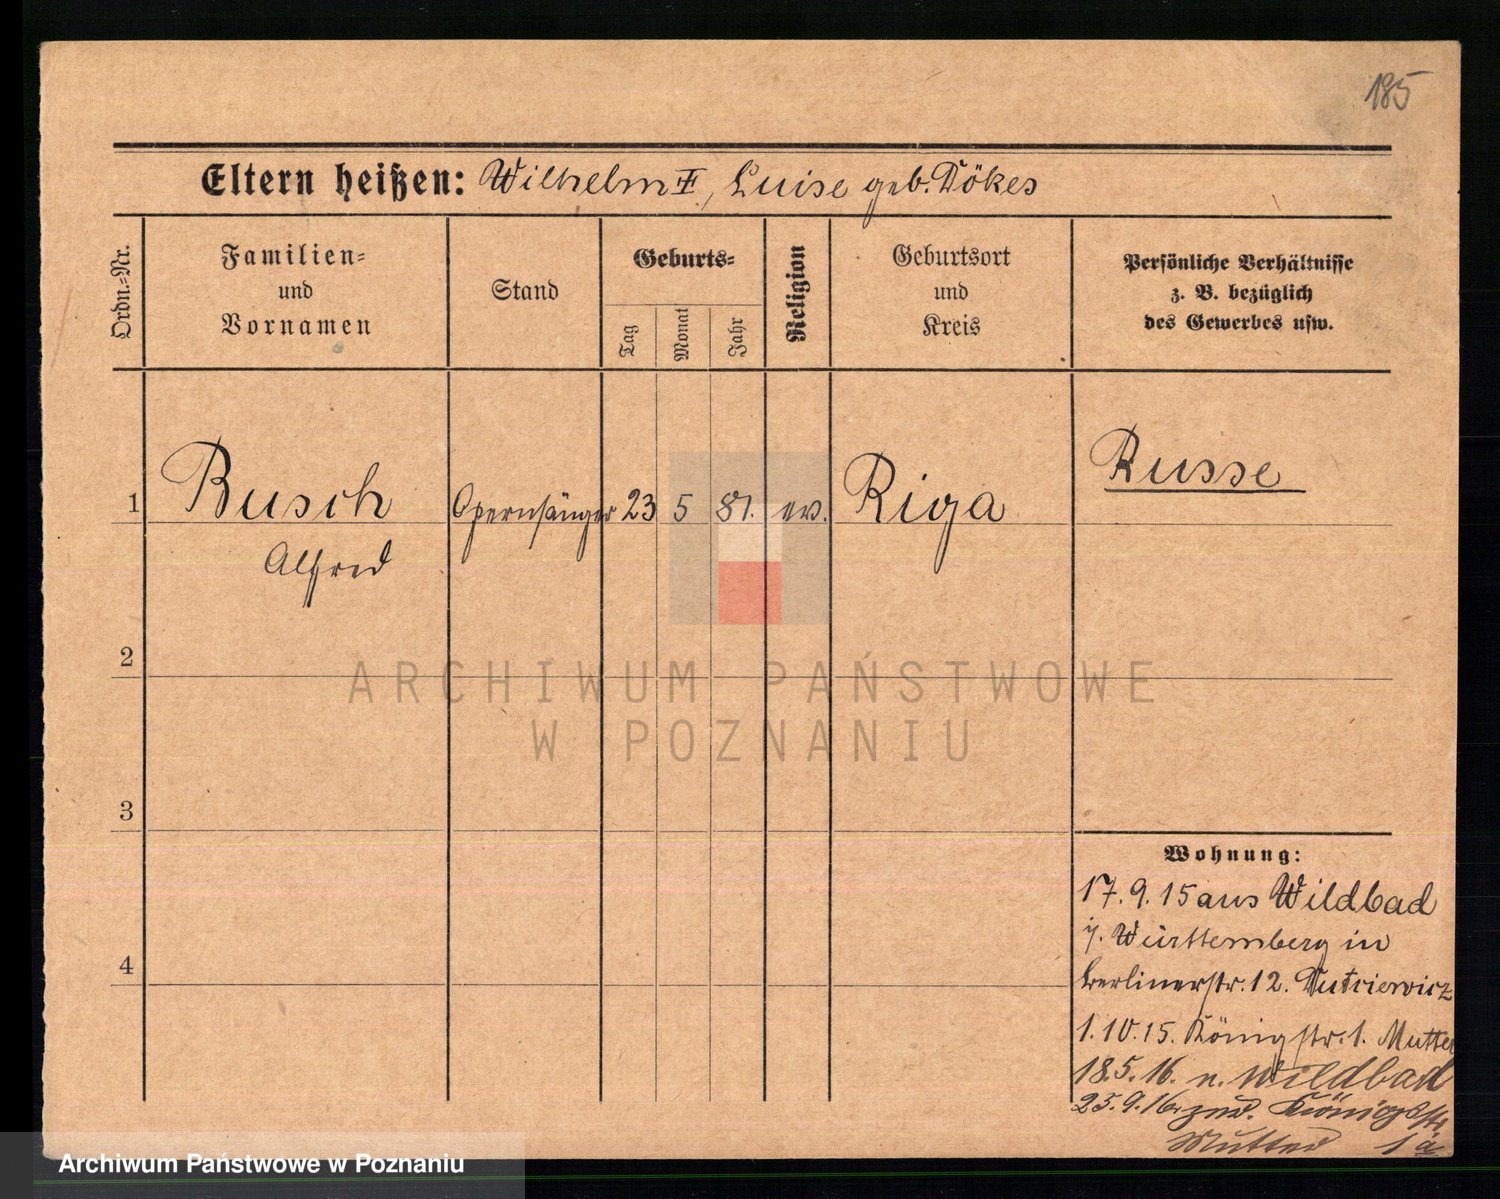 185
Eltern heißen: Wilhelm II, Luise geb. Dökes
Ordn.-Nr.
Familien-
und
Vornamen
Stand
Geburts-
Tag
Monat
Jahr
Religion
Geburtsort
und
Kreis
Persönliche Verhältnisse
z. B. bezüglich
des Gewerbes usw.
1 Busch Opernsänger 23 5 81. ev. Riga Russe
Alfred
2
ARCHIWUM PAŃSTWOWE
W POZNANIU
3
Wohnung:
17. 9. 15 aus Wildbad
i. Württemberg in
4
Berlinerstr. 12.
1. 10. 15. Königstr. 1. Mutter
18. 5. 16. n. Wildbad
23. 9. 16 zur. Königstr.
Mutter
Archiwum Państwowe w Poznaniu